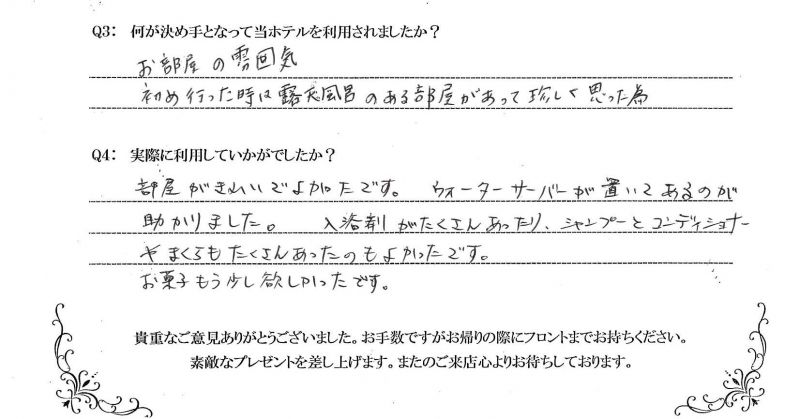 Q3: 何が決め手となって当ホテルを利用されましたか?
お部屋の雰囲気
初め行った時は露天風呂のある部屋があって珍しく思った為
Q4: 実際に利用していかがでしたか?
部屋がきれいでよかったです。 ウォーターサーバーが置いてあるのが
助かりました。 入浴剤がたくさんあったり、シャンプーとコンディショナー
やまくらもたくさんあったのもよかったです。
お菓子もう少し欲しかったです。
貴重なご意見ありがとうございました。お手数ですがお帰りの際にフロントまでお持ちください。
素敵なプレゼントを差し上げます。またのご来店心よりお待ちしております。